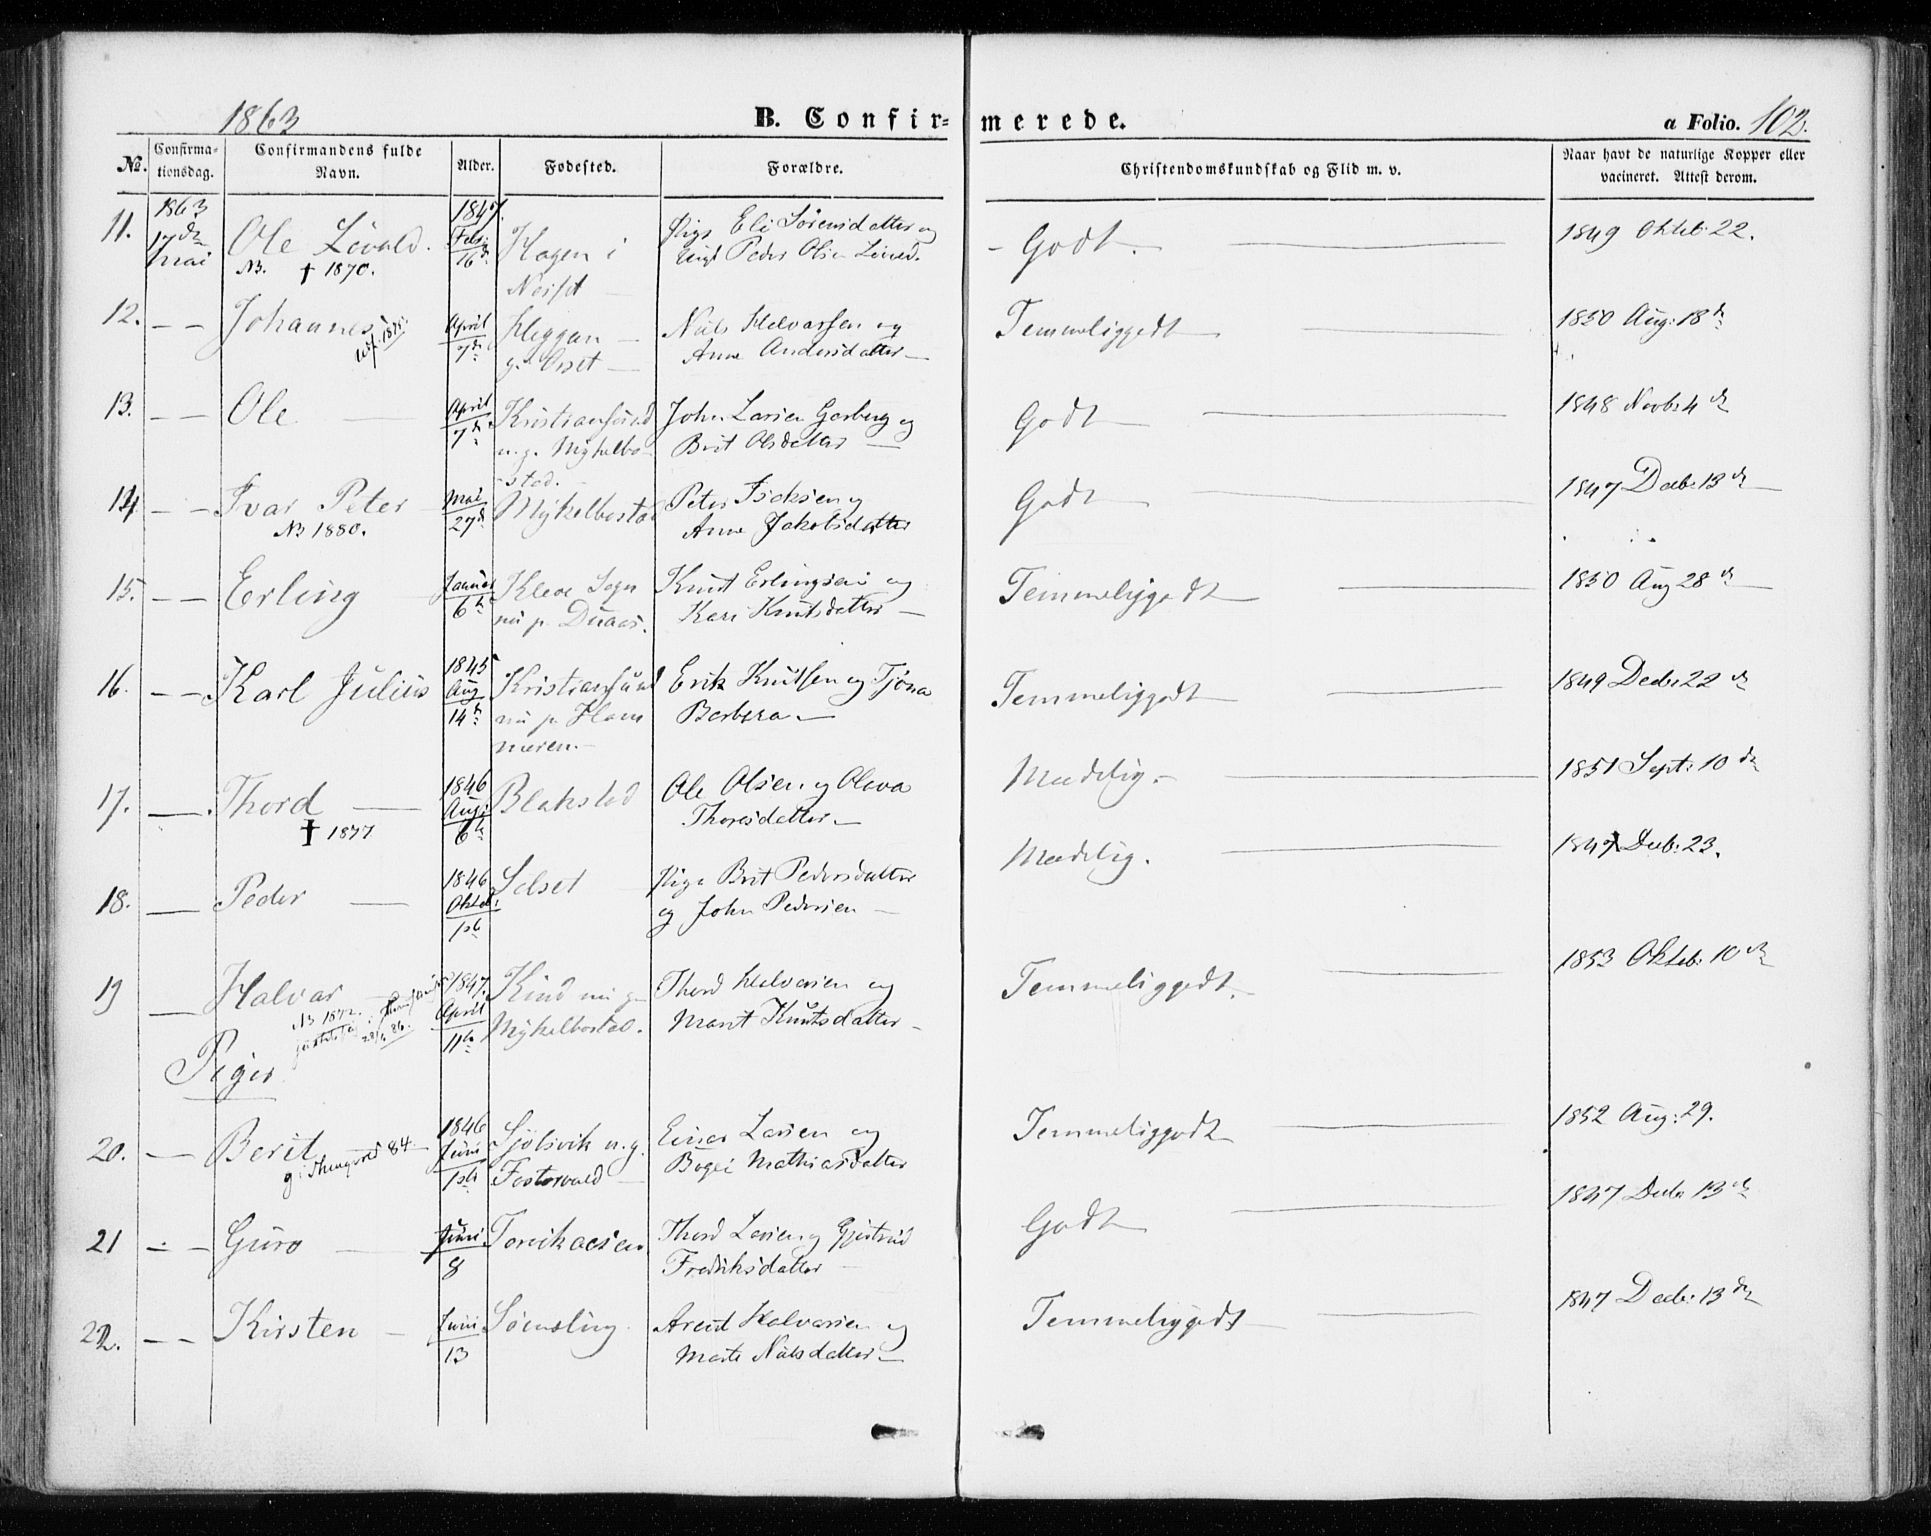 1863 B. Confirmerede. a Folio. 102.
No. Confirmationsdag. Confirmandens fulde Navn. Alder. Fødested. Forældre. Christendomskundskab og Flid m. v. Naar havt de naturlige Kopper eller vacineret. Attest derom.
11. 1863 17de Mai Ole Edvald. 1847. Feb: 16de Hagen i Pige Eli Sørensdatter og - Godt. 1849 Oktob: 22.
NB. † 1870. Peder Olsen
12. — — Johannes April 7de Heggan Niels Halvarsen og Temmeliggodt 1850 Aug: 18de
1875 Orset — Anne Andersdatter —
13. — — Ole — April 7de Kristiansund John Larsen Garberg og Godt 1848 Novb: 4de
n. g. Myhelbo- Brit Olsdatter —
stad.
14. — — Ivar Peter Mai 27de Mykelbostad Peter Isaksen og Godt 1847 Decb: 13de
NB 1880. Anne Jakobsdatter
15. — — Erling Januar 6te Kleve Sogn Knut Erlingsen og Temmeliggodt 1850 Aug 28de
nu p. Duaas. Kari Knutsdatter —
16. — — Karl Julius 1845 Aug 14de Kristiansund Erik Knutsen og Temmeliggodt 1849 Decb: 22de
nu p. Ham Barbera —
meren. —
17. — Thord — 1846 Aug: 6te Blakstad Ole Olsen og Olava Maadelig. 1851 Sept: 10de
† 1877 Thoresdatter —
18. — Peder — 1846 Oktob. 1ste Selset Pige Brit Pedersdatter Maadelig. 1847 Decb: 23.
og John Pedersen —
19 — Halvar 1847. April 11te Kind nu p. Thord Halvarsen og Temmeliggodt. 1853 Oktob: 10de
NB 1872. Mykelbostad. Marit Knutsdatter —
28/6 86.
Piger
20. — Berit 1846 Juni 1ste Sjølsvik n. g. Einar Larsen og Temmeliggodt 1852 Aug: 29.
g i Thingvold 84. Fostervold — Mathiasdatter
21 — — Guro — Juni 8 Torvikaesen Thord Larsen og Gjertrud Godt 1847 Decb. 13de
Fredriksdatter —
22. — — Kirsten — Juni 13 Arent Halvarsen og Temmeliggodt 1847 Decb: 13de
Marte Nilsdatter —